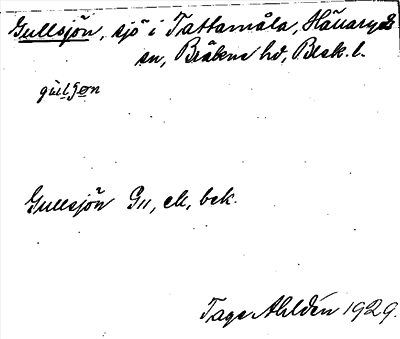 Gullsjön, sjö i Tattamåla, Hällaryds
sn, Bräkne hd, Blek. l.
gulʃon
Gullsjön G11, ek, bck.
Tage Ahldén 1929.